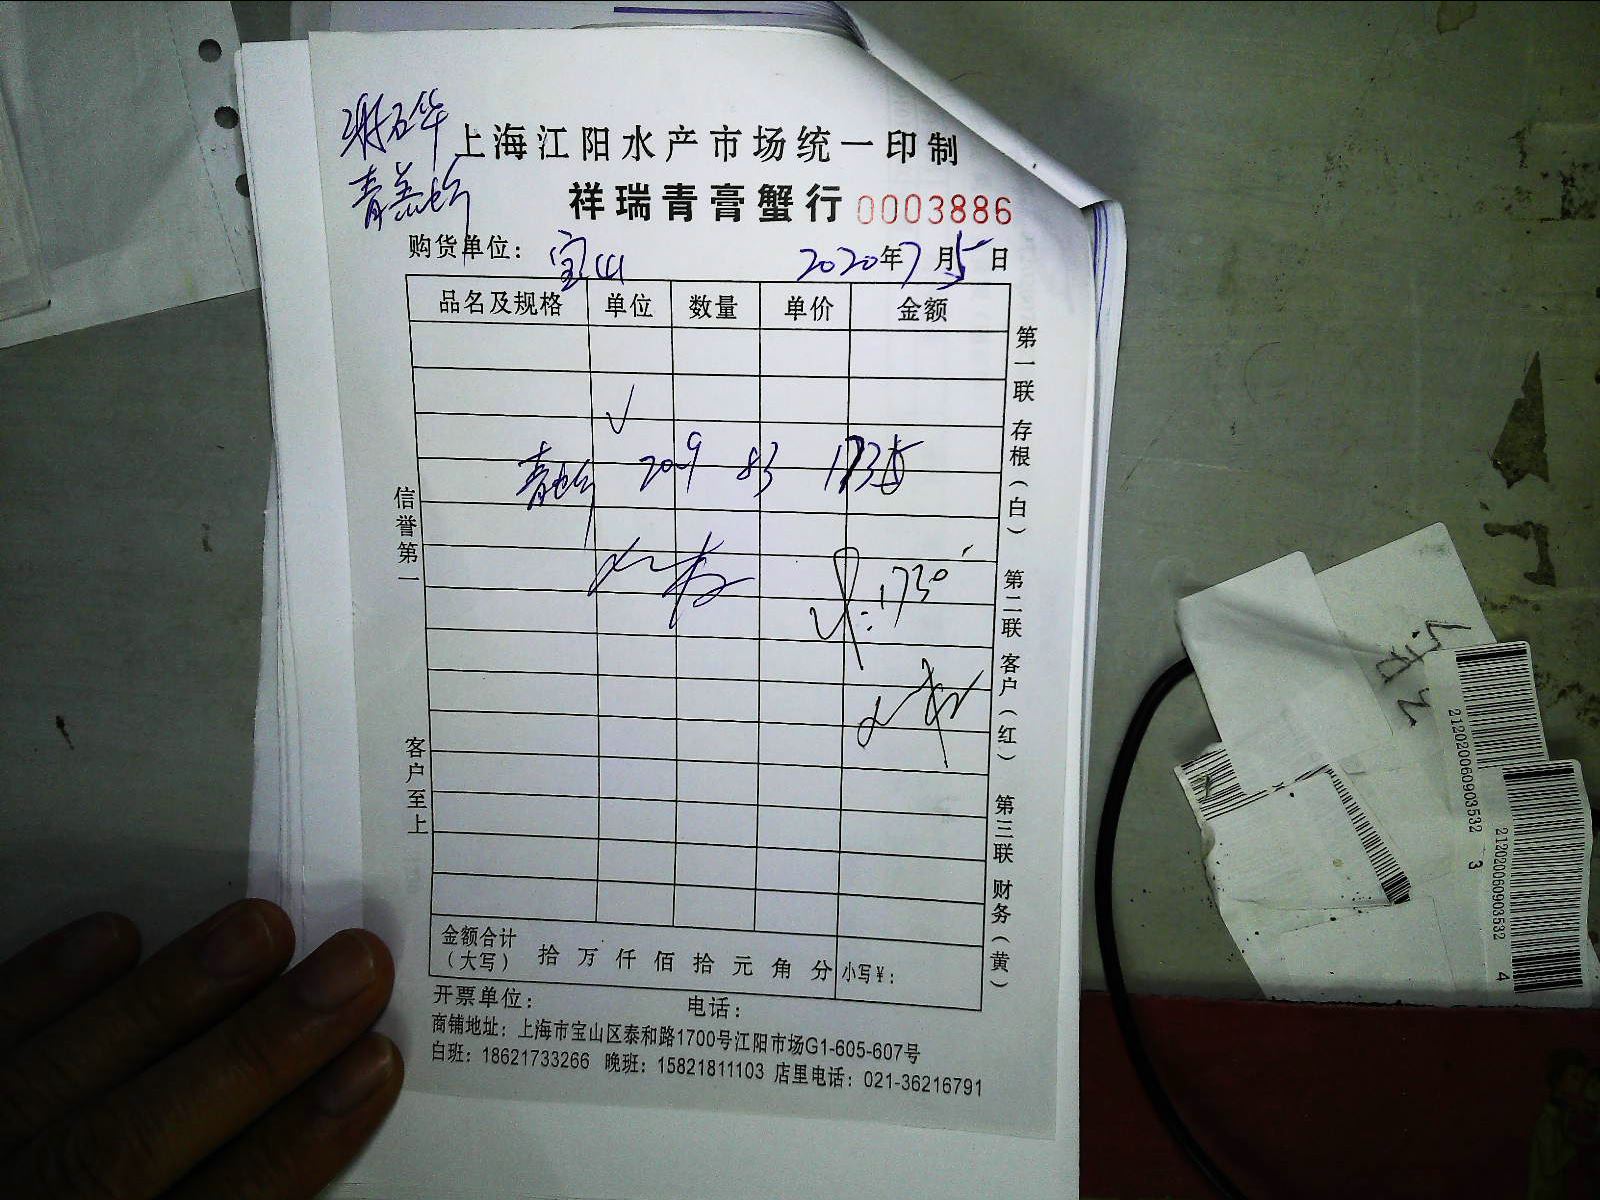 谢石华
上海江阳水产市场统一印制
青羔蚧
祥瑞青膏蟹行 0003886
购货单位: 宝山 2020年7月5日
品名及规格 单位 数量 单价 金额
√
20.9 83 1735
¥:1730
信誉第一
客户至上
第一联 存根(白) 第二联 客户(红) 第三联 财务(黄)
金额合计(大写) 拾 万 仟 佰 拾 元 角 分 小写¥:
开票单位: 电话:
商铺地址: 上海市宝山区泰和路1700号江阳市场G1-605-607号
白班: 18621733266 晚班: 15821811103 店里电话: 021-36216791
212020060903532 3
212020060903532 4